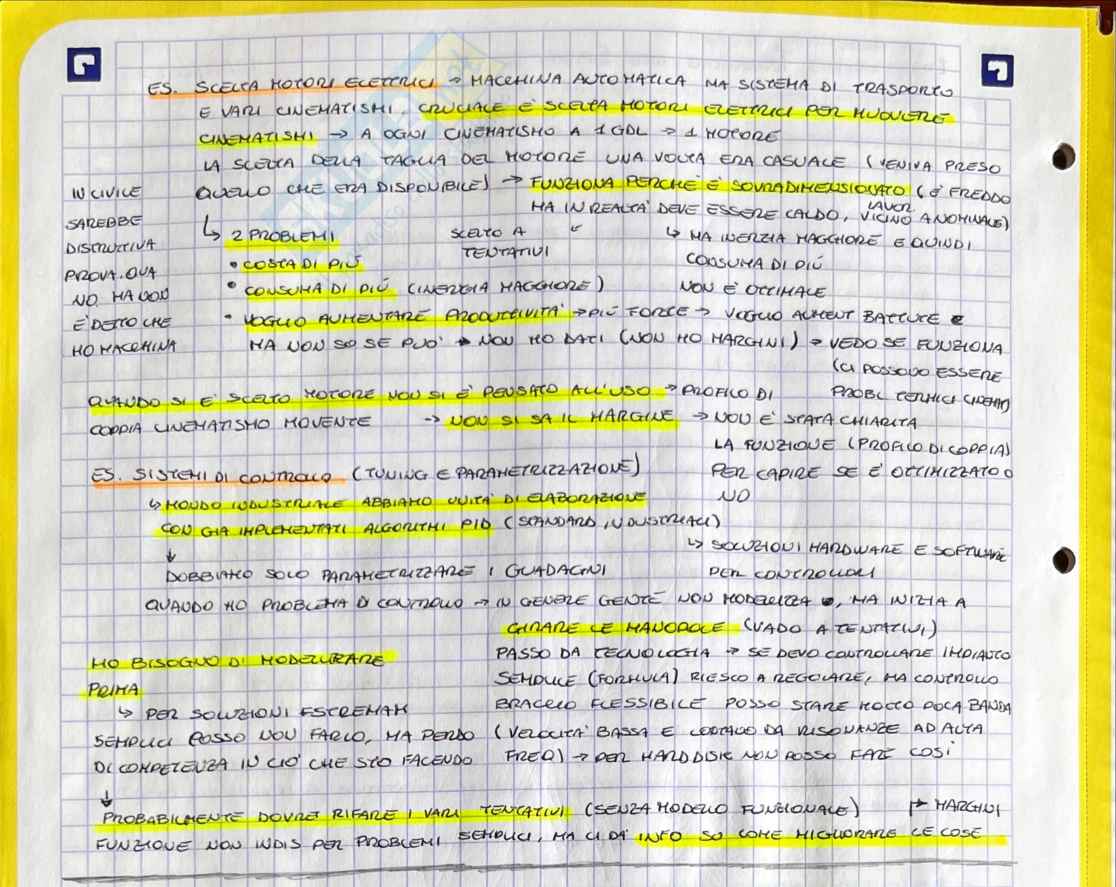 ES. SCELTA MOTORI ELETTRICI → MACCHINA AUTOMATICA HA SISTEMA DI TRASPORTO
E VARI CINEMATISMI. CRUCIALE È SCELTA MOTORI ELETTRICI PER MUOVERE
CINEMATISMI → A OGNI CINEMATISMO A 1 GDL → 1 MOTORE
LA SCELTA DELLA TAGLIA DEL MOTORE UNA VOLTA ERA CASUALE (VENIVA PRESO
QUELLO CHE ERA DISPONIBILE) → FUNZIONA PERCHÈ È SOVRADIMENSIONATO (È FREDDO
MA IN REALTÀ DEVE ESSERE CALDO, LAVOR VICINO A NOMINALE)
IN CIVILE
SAREBBE
DISTRUTTIVA
PROVA. QUA
NO MA NON
È DETTO CHE
HO MACCHINA
↳ 2 PROBLEMI
SCELTO A
TENTATIVI
↳ HA INERZIA MAGGIORE E QUINDI
CONSUMA DI PIÙ
NON È OTTIMALE
• COSTA DI PIÙ
• CONSUMA DI PIÙ (INERZIA MAGGIORE)
• VOGLIO AUMENTARE PRODUTTIVITÀ → PIÙ FORZE → VOGLIO AUMENT BATTUTE
MA NON SO SE PUÒ → NON HO DATI (NON HO MARGINI) → VEDO SE FUNZIONA
(CI POSSONO ESSERE
PROBL TERMICI CINEM)
QUANDO SI È SCELTO MOTORE NON SI È PENSATO ALL'USO → PROFILO DI
COPPIA CINEMATISMO MOVENTE → NON SI SA IL MARGINE → NON È STATA CHIARITA
LA FUNZIONE (PROFILO DI COPPIA)
PER CAPIRE SE È OTTIMIZZATO O
NO
ES. SISTEMI DI CONTROLLO (TUNING E PARAMETRIZZAZIONE)
↳ MONDO INDUSTRIALE ABBIAMO UNITÀ DI ELABORAZIONE
CON GIÀ IMPLEMENTATI ALGORITMI PID (STANDARD INDUSTRIALI)
↳ SOLUZIONI HARDWARE E SOFTWARE
PER CONTROLLORI
↓
DOBBIAMO SOLO PARAMETRIZZARE I GUADAGNI
QUANDO HO PROBLEMA DI CONTROLLO → IN GENERE GENTE NON MODELLIZZA, MA INIZIA A
GIRARE LE MANOPOLE (VADO A TENTATIVI)
PASSO DA TECNOLOGIA → SE DEVO CONTROLLARE IMPIANTO
SEMPLICE (FORMULA) RIESCO A REGOLARE, MA CONTROLLO
BRACCIO FLESSIBILE POSSO STARE MOLTO POCA BANDA
(VELOCITÀ BASSA E LONTANO DA RISONANZE AD ALTA
FREQ) → PER HARD DISK NON POSSO FARE COSÌ
HO BISOGNO DI MODELLIZZARE
PRIMA
↳ PER SOLUZIONI ESTREMAM
SEMPLICI POSSO NON FARLO, MA PERDO
DI COMPETENZA IN CIÒ CHE STO FACENDO
↓
PROBABILMENTE DOVREI RIFARE I VARI TENTATIVI (SENZA MODELLO FUNZIONALE)
FUNZIONE NON INDIS PER PROBLEMI SEMPLICI, MA CI DÀ INFO SU COME MIGLIORARE LE COSE
↱ MARGINI